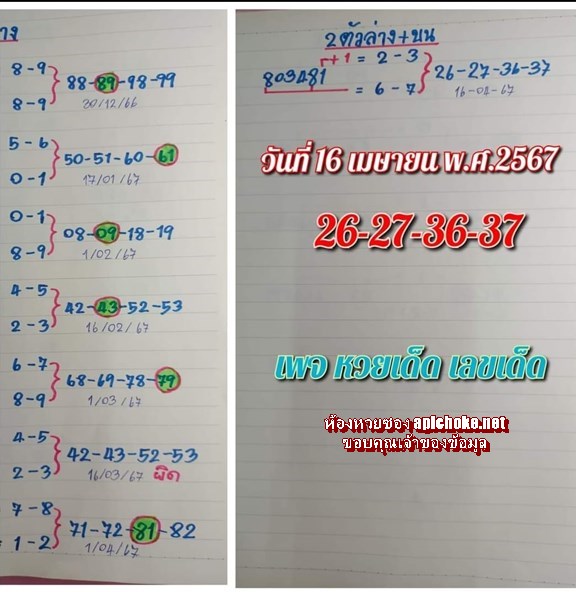 าง
8-9
88-89-98-99
8-9
30/12/66
5-6
50-51-60-61
0-1
17/01/67
0-1
08-09-18-19
8-9
1/02/67
4-5
42-43-52-53
2-3
16/02/67
6-7
68-69-78-79
8-9
1/03/67
4-5
42-43-52-53
2-3
16/03/67 ผิด
7-8
71-72-81-82
1-2
1/04/67
2ตัวล่าง+บน
r+1 = 2-3
803481
26-27-36-37
= 6-7
16-04-67
วันที่ 16 เมษายน พ.ศ.2567
26-27-36-37
เพจ หวยเด็ด เลขเด็ด
ห้องหวยซอง apichoke.net
ขอบคุณเจ้าของข้อมูล